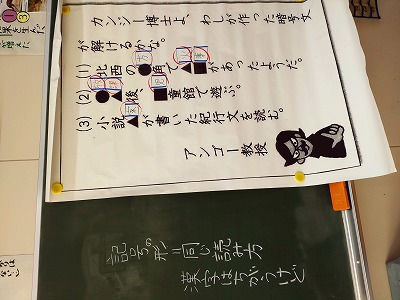 カンジー博士よ、わしが作った暗号文
が解けるかな。
方 火 事
(1)北西の●で▲■があったようだ。
放 課 児
(2)●▲後、■童館で遊ぶ。
家
(3)小説▲が書いた紀行文を読む。
アンゴー教授
記号の形=同じ読み方
漢字はちがうけど